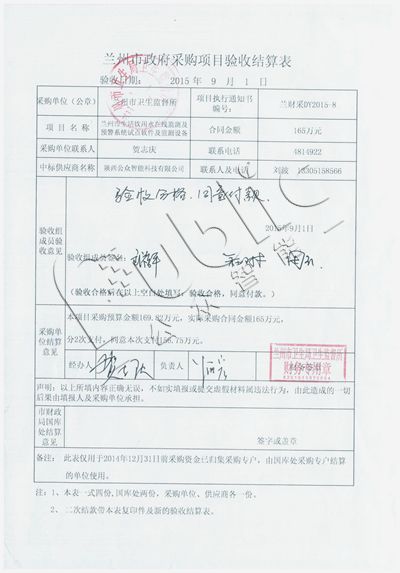 兰州市政府采购项目验收结算表
验收日期： 2015 年 9 月 1 日
采购单位（公章） 兰州市卫生监督所 项目执行通知书编号： 兰财采DY2015-8
项 目 名 称 兰州市生活饮用水在线监测及预警系统试点软件及监测设备 合同金额 165万元
采购单位联系人 贺志庆 联系电话 4814922
中标供应商名称 陕西公众智能科技有限公司 联系人及电话 刘波 13305158566
验收组成员验收意见
验收合格，同意付款.
2015年9月1日
验收组成员签字：
（验收合格后在以上空白处填写：验收合格，同意付款。）
采购单位结算意见
本项目采购预算金额169.82万元，实际采购合同金额165万元，
分2次支付，同意本次支付156.75万元。
经办人 负责人
兰州市卫生局卫生监督所
财务专用章
声明：以上所填内容正确无误，不如实填报或提交虚假材料属违法行为，由此造成的一切
后果由填报人及采购单位承担。
市财政局国库处结算意见
签字或盖章
备注： 此表仅用于2014年12月31日前采购资金已归集采购专户，由国库处采购专户结算
的单位使用。
注：1、本表一式四份，国库处两份，采购单位、供应商各一份。
2、二次结款带本表复印件及新的验收结算表。
Public
公众智能